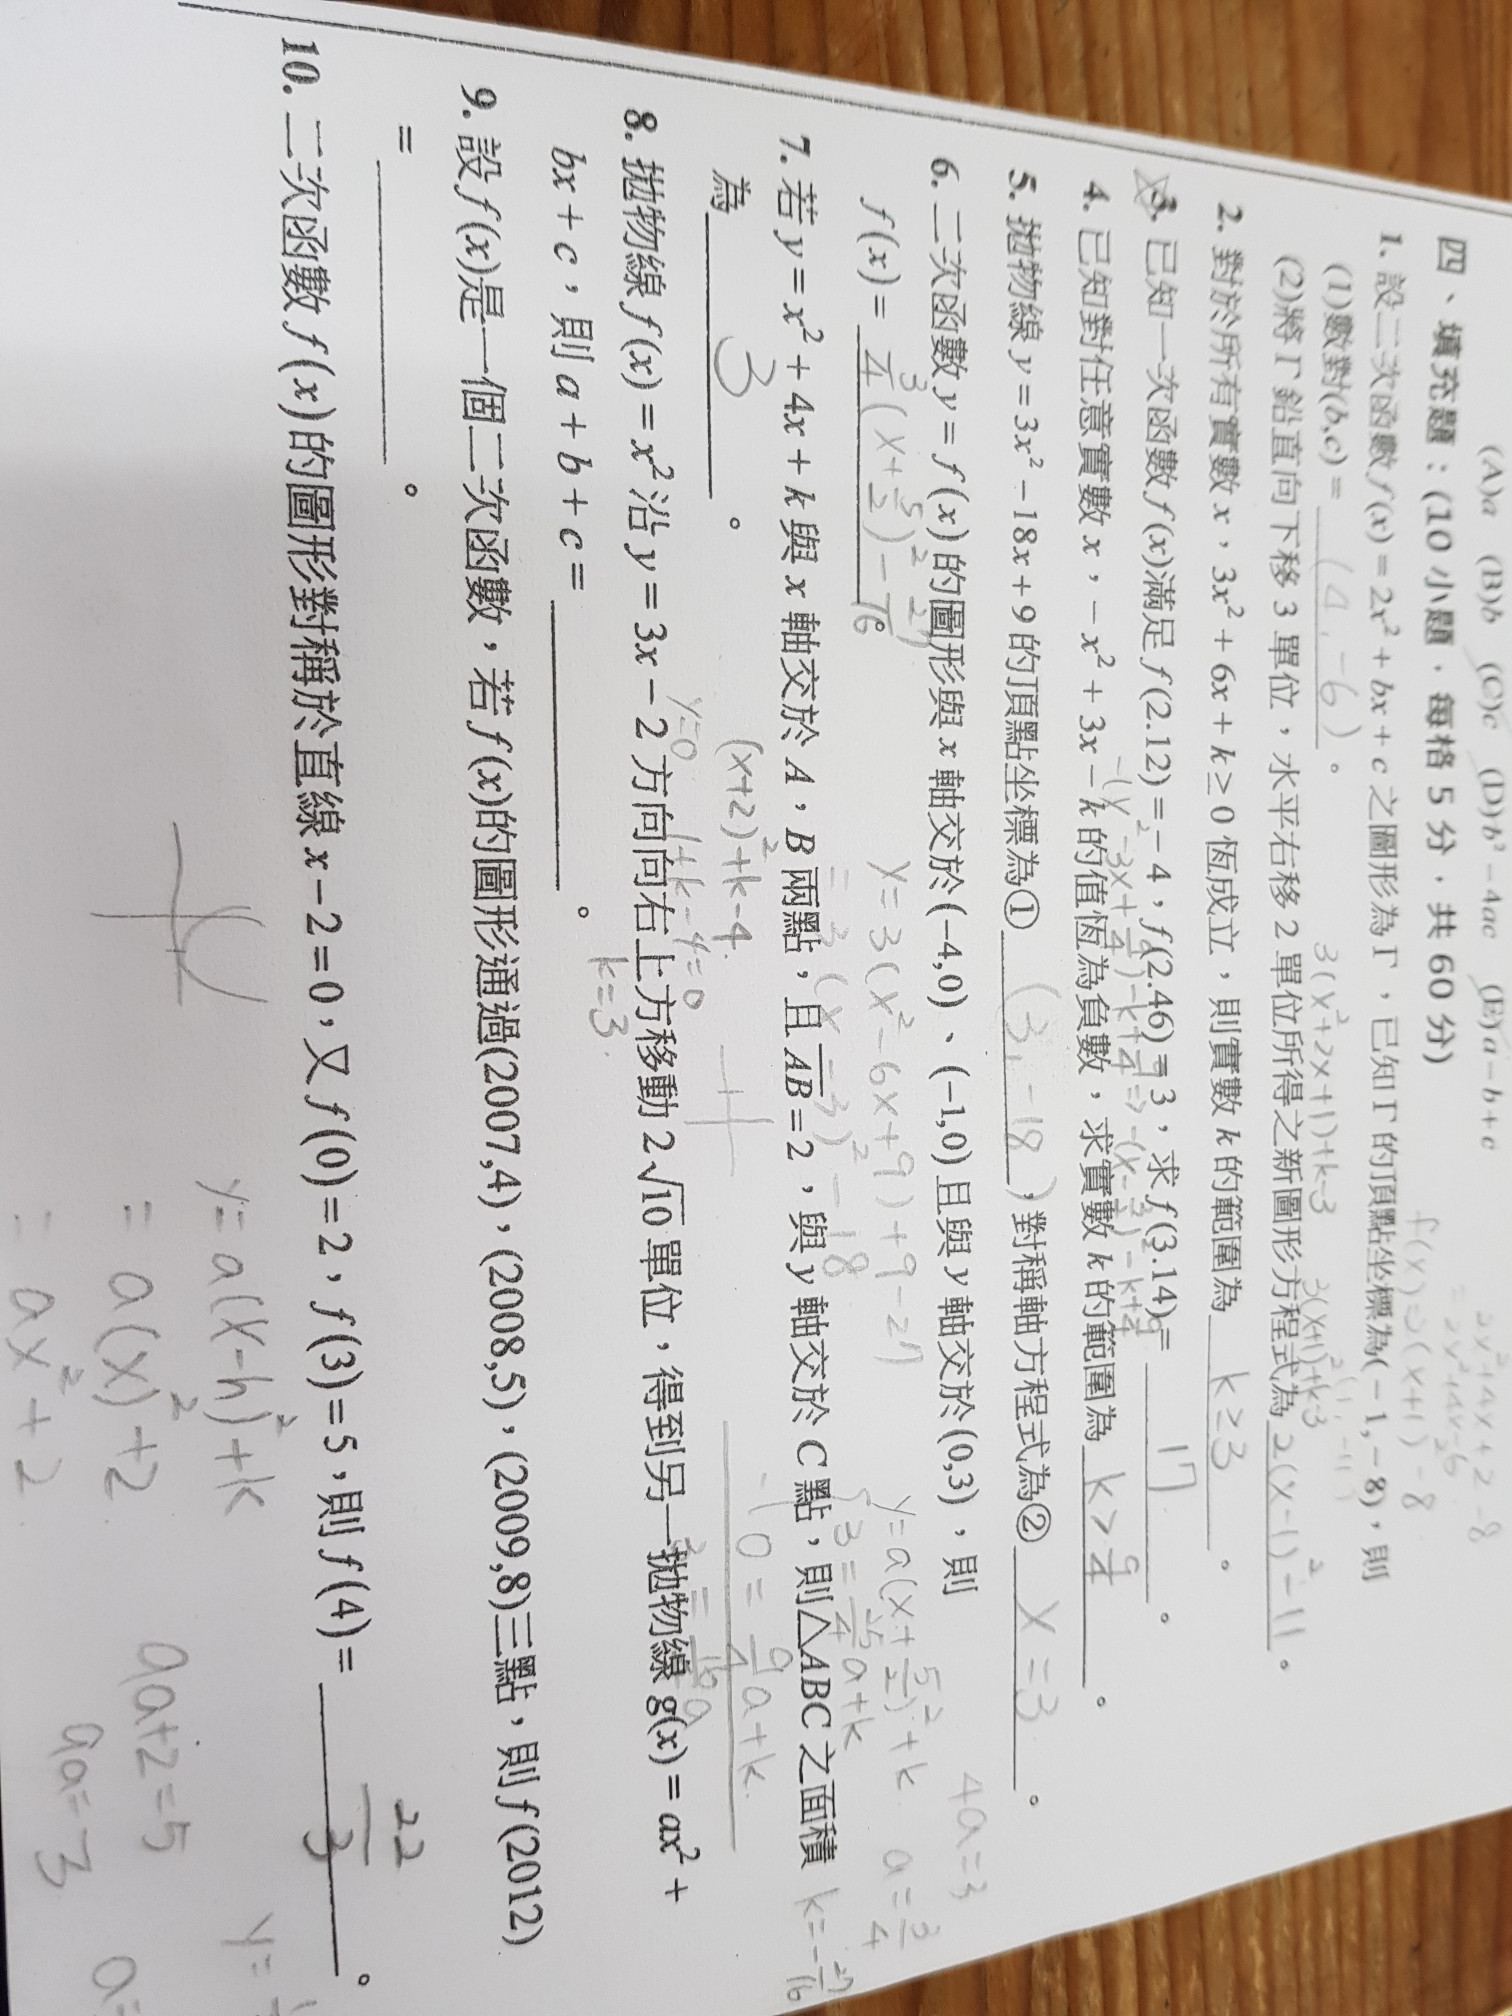 (A)a (B)b (C)c (D)b²-4ac (E)a-b+c
四、填充題：(10 小題，每格 5 分，共 60 分)
2x²+4x+2-8
=2x²+4x-6
f(x)=2(x+1)²-8
1. 設二次函數 f(x)=2x²+bx+c 之圖形為Γ，已知Γ的頂點坐標為(-1,-8)，則
(1)數對(b,c)= (4,-6)。
(2)將Γ鉛直向下移 3 單位，水平右移 2 單位所得之新圖形方程式為 2(x-1)²-11。
3(x²+2x+1)+k-3
3(x+1)²+k-3
2. 對於所有實數 x，3x²+6x+k≥0 恆成立，則實數 k 的範圍為 k≥3。
3. 已知一次函數 f(x)滿足 f(2.12)=-4，f(2.46)=3，求 f(3.14)= 17。
4. 已知對任意實數 x，-x²+3x-k 的值恆為負數，求實數 k 的範圍為 k>9/4。
5. 拋物線 y=3x²-18x+9 的頂點坐標為① (3,-18)，對稱軸方程式為② x=3。
y=3(x²-6x+9)+9-27
=3(x-3)²-18
6. 二次函數 y=f(x)的圖形與 x 軸交於(-4,0)、(-1,0)且與 y 軸交於(0,3)，則
f(x)= 3/4(x+5/2)²-27/16。
4a=3
y=a(x+5/2)²+k
a=3/4
3=25/4a+k
0=9/4a+k
k=-27/16
7. 若 y=x²+4x+k 與 x 軸交於 A，B 兩點，且 AB=2，與 y 軸交於 C 點，則△ABC 之面積
為 3。
(x+2)²+k-4
y=0
1+k-4=0
k=3
8. 拋物線 f(x)=x²沿 y=3x-2 方向向右上方移動 2√10 單位，得到另一拋物線 g(x)=ax²+
bx+c，則 a+b+c=。
9. 設 f(x)是一個二次函數，若 f(x)的圖形通過(2007,4)，(2008,5)，(2009,8)三點，則 f(2012)
=。
10. 二次函數 f(x)的圖形對稱於直線 x-2=0，又 f(0)=2，f(3)=5，則 f(4)=。
22/3
y=a(x-h)²+k
=a(x)²+2
=ax²+2
9a+2=5
9a=3
y=
a=